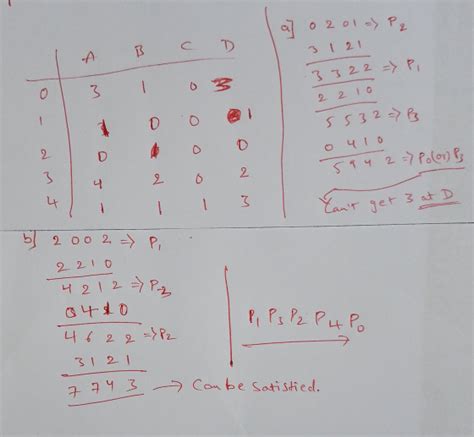 A B C D
0 3 1 0 3
1 1 0 0 1
2 0 1 0 0
3 4 2 0 2
4 1 1 1 3
a] 0 2 0 1 => P2
3 1 2 1
3 3 2 2 => P1
2 2 1 0
5 5 3 2 => P3
0 4 1 0
5 9 4 2 => P0(or)P3
Can't get 3 at D
b] 2 0 0 2 => P1
2 2 1 0
4 2 1 2 => P3
0 4 1 0
4 6 2 2 => P2
3 1 2 1
7 7 4 3 → Can be satisfied.
P1 P3 P2 P4 P0